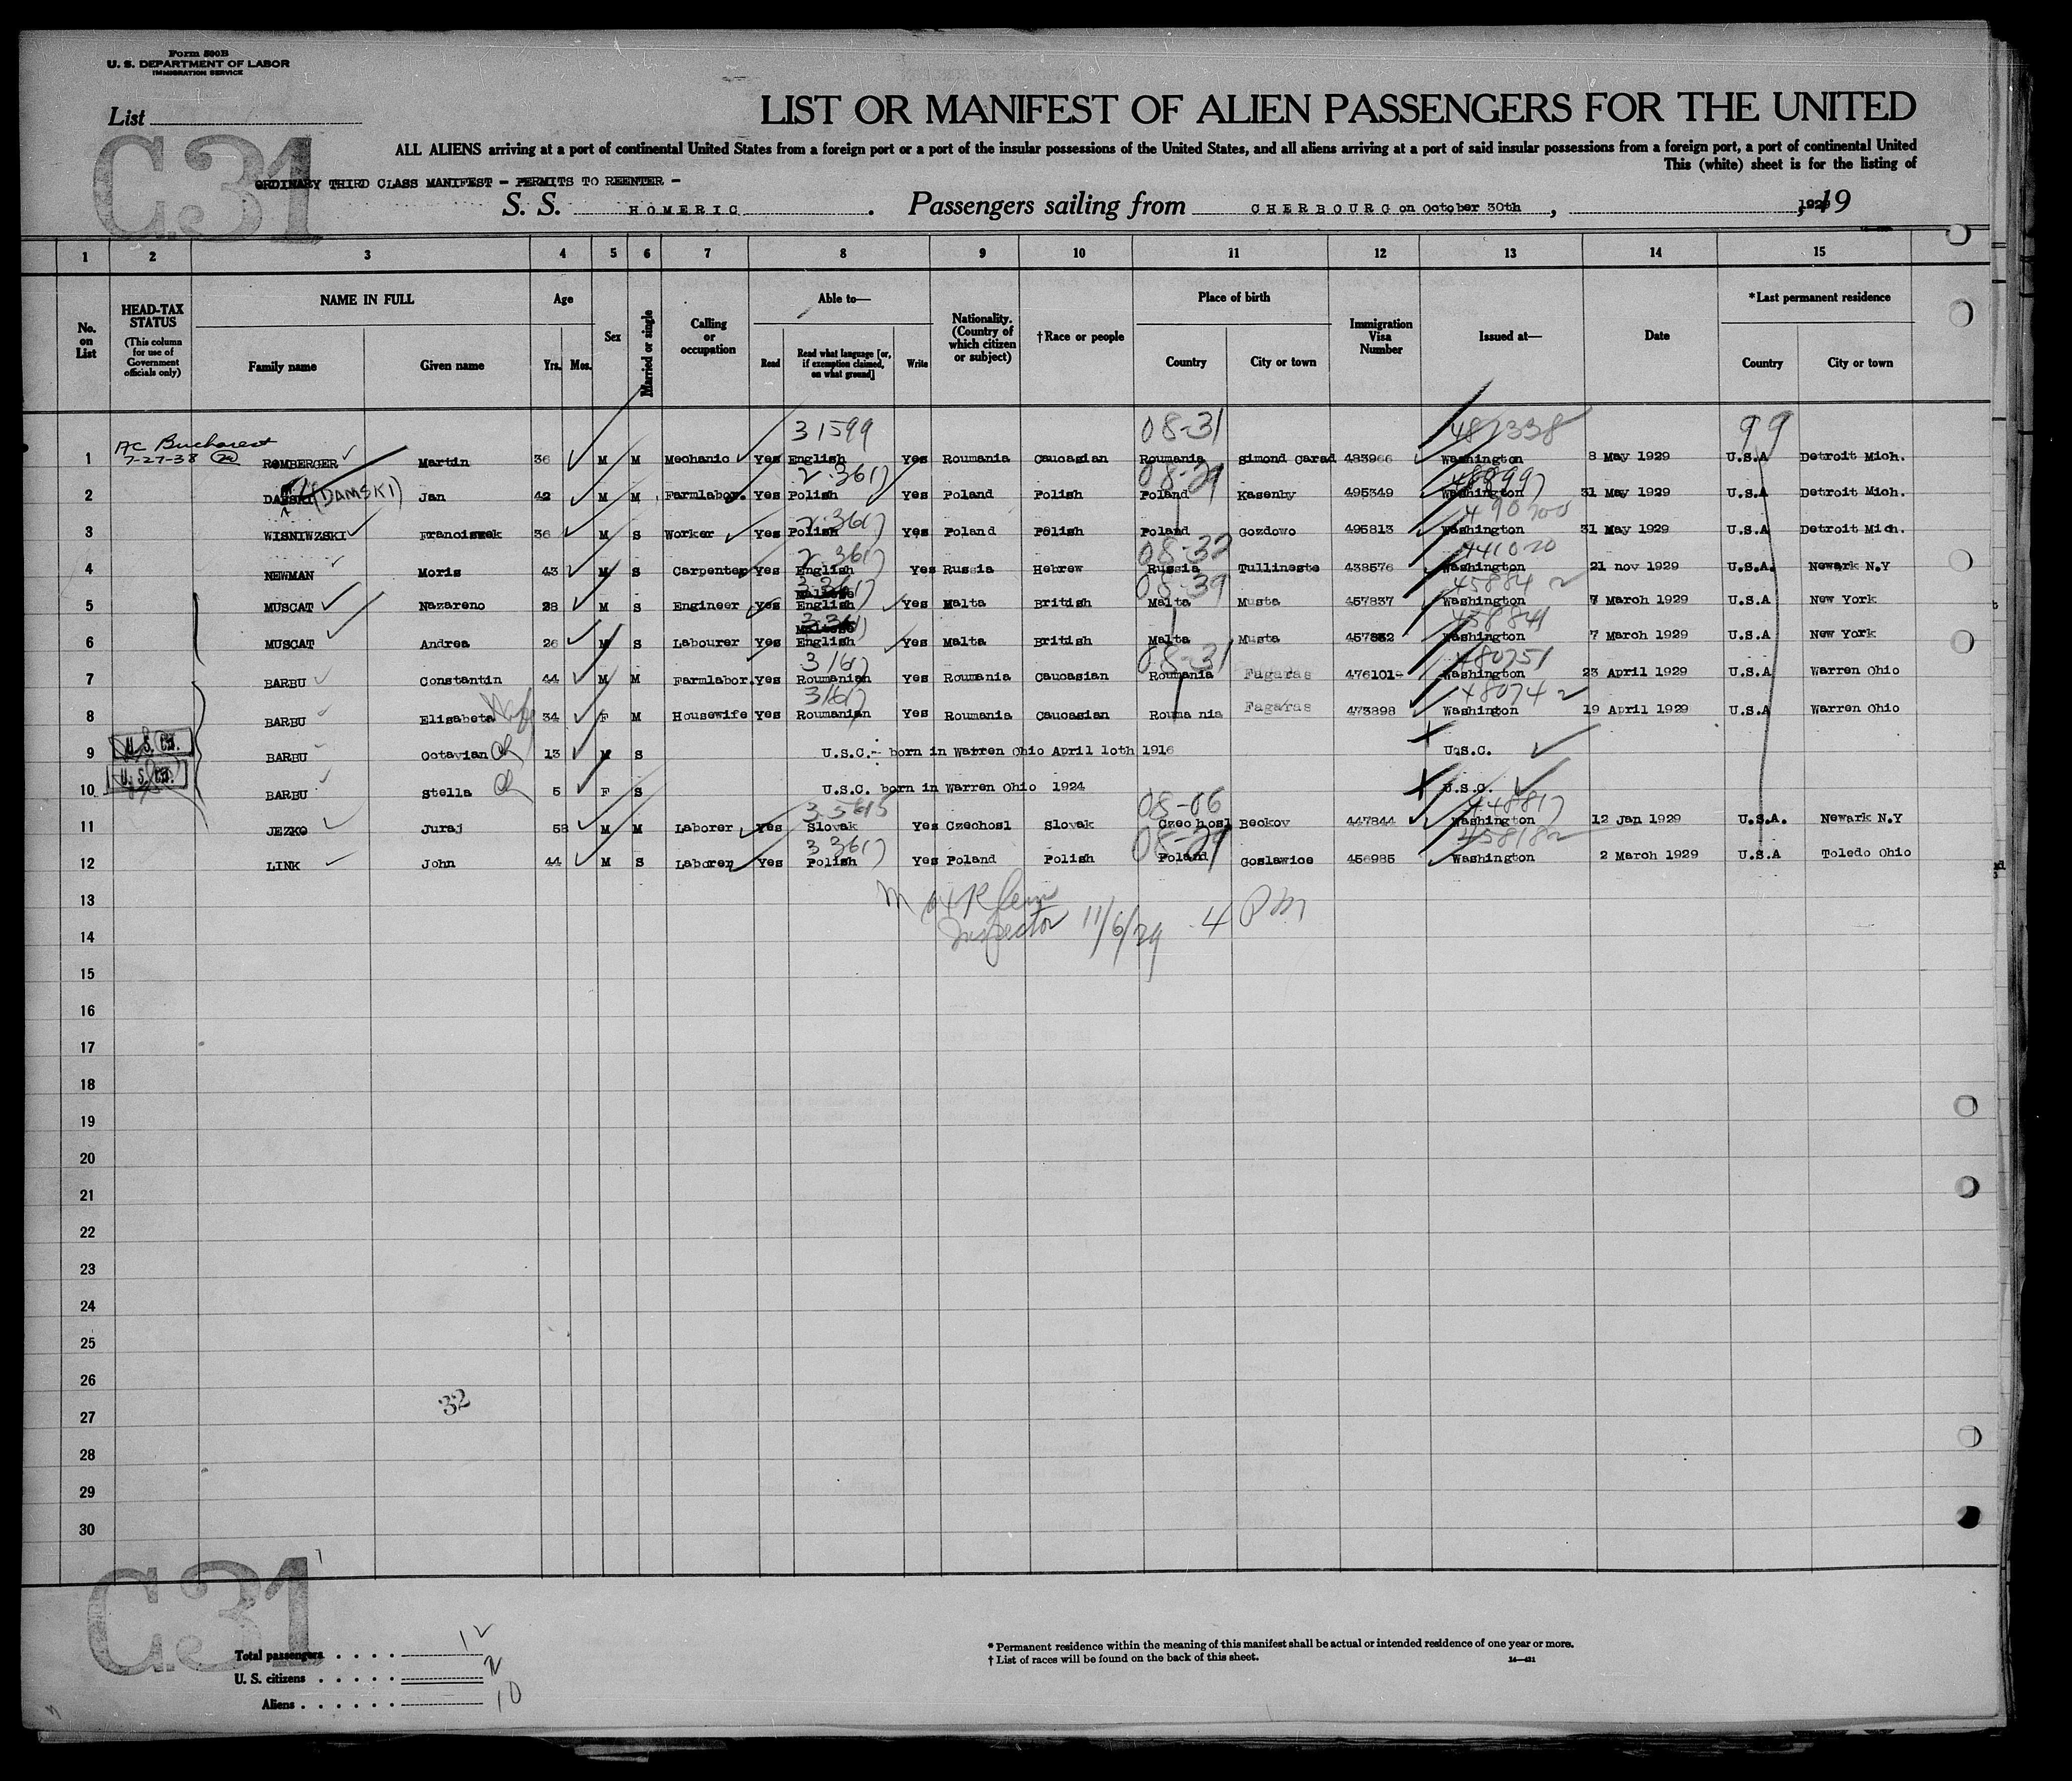 Form 500B
U. S. DEPARTMENT OF LABOR
IMMIGRATION SERVICE
List
C.31
LIST OR MANIFEST OF ALIEN PASSENGERS FOR THE UNITED
ALL ALIENS arriving at a port of continental United States from a foreign port or a port of the insular possessions of the United States, and all aliens arriving at a port of said insular possessions from a foreign port, a port of continental United
This (white) sheet is for the listing of
ORDINARY THIRD CLASS MANIFEST - PERMITS TO REENTER -
S. S. HOMERIC. Passengers sailing from CHERBOURG on October 30th, , 19
1 2 3 4 5 6 7 8 9 10 11 12 13 14 15
No. on List
HEAD-TAX STATUS (This column for use of Government officials only)
NAME IN FULL Family name Given name
Age Yrs. Mos.
Sex
Married or single
Calling or occupation
Able to— Read Read what language [or, if exemption claimed, on what ground] Write
Nationality. (Country of which citizen or subject)
†Race or people
Place of birth Country City or town
Immigration Visa Number
Issued at—
Date
*Last permanent residence Country City or town
31599 08-31 99
AC Bucharest
7-27-38
1 ROMBERGER Martin 36 M M Mechanic Yes English Yes Roumania Caucasian Roumania Simond Carad 483966 Washington 8 May 1929 U.S.A Detroit Mich.
2 (DAMSKI) Jan 42 M M Farmlabor. Yes Polish Yes Poland Polish Poland Kasenby 495349 Washington 31 May 1929 U.S.A Detroit Mich.
3 WISNIWZSKI Franciszek 36 M S Worker Yes Polish Yes Poland Polish Poland Gozdowo 495813 Washington 31 May 1929 U.S.A Detroit Mich.
4 NEWMAN Moris 43 M S Carpenter Yes English Yes Russia Hebrew Russia Tullineste 438576 Washington 21 nov 1929 U.S.A. Newark N.Y
5 MUSCAT Nazareno 28 M S Engineer Yes English Yes Malta British Malta Musta 457837 Washington 7 March 1929 U.S.A New York
6 MUSCAT Andrea 26 M S Labourer Yes English Yes Malta British Malta Musta 457832 Washington 7 March 1929 U.S.A New York
7 BARBU Constantin 44 M M Farmlabor. Yes Roumanian Yes Roumania Caucasian Roumania Fagaras 476101 Washington 23 April 1929 U.S.A Warren Ohio
8 BARBU Elisabeta 34 F M Housewife Yes Roumanian Yes Roumania Caucasian Roumania Fagaras 473898 Washington 19 April 1929 U.S.A Warren Ohio
9 BARBU Octavian 13 M S U.S.C.- born in Warren Ohio April 10th 1916 U.S.C.
10 BARBU Stella 5 F S U.S.C. born in Warren Ohio 1924 U.S.C.
11 JEZKO Juraj 58 M M Laborer Yes Slovak Yes Czechosl Slovak Czechosl Beckov 447844 Washington 12 Jan 1929 U.S.A. Newark N.Y
12 LINK John 44 M S Laborer Yes Polish Yes Poland Polish Poland Goslawice 456985 Washington 2 March 1929 U.S.A Toledo Ohio
13
Inspector 11/6/29 4 PM
14
15
16
17
18
19
20
21
22
23
24
25
26
32
27
28
29
30
C.31
Total passengers 12
U. S. citizens 2
Aliens 10
* Permanent residence within the meaning of this manifest shall be actual or intended residence of one year or more.
† List of races will be found on the back of this sheet.
14—421